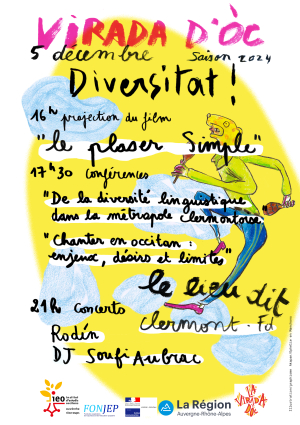 VIRADA D'ÒC
5 décembre saison 2024
Diversitat !
16h projection du film
"le plaser simple"
17h30 conférences
"De la diversité linguistique
dans la métropole clermontoise"
"Chanter en occitan :
enjeux, désirs et limites"
le lieu dit
Clermont-Fd
21h concerts
Rodín
DJ Soufi Aubrac
ieo
FONJEP
La Région
Auvergne-Rhône-Alpes
LA
VIRADA
D'ÒC